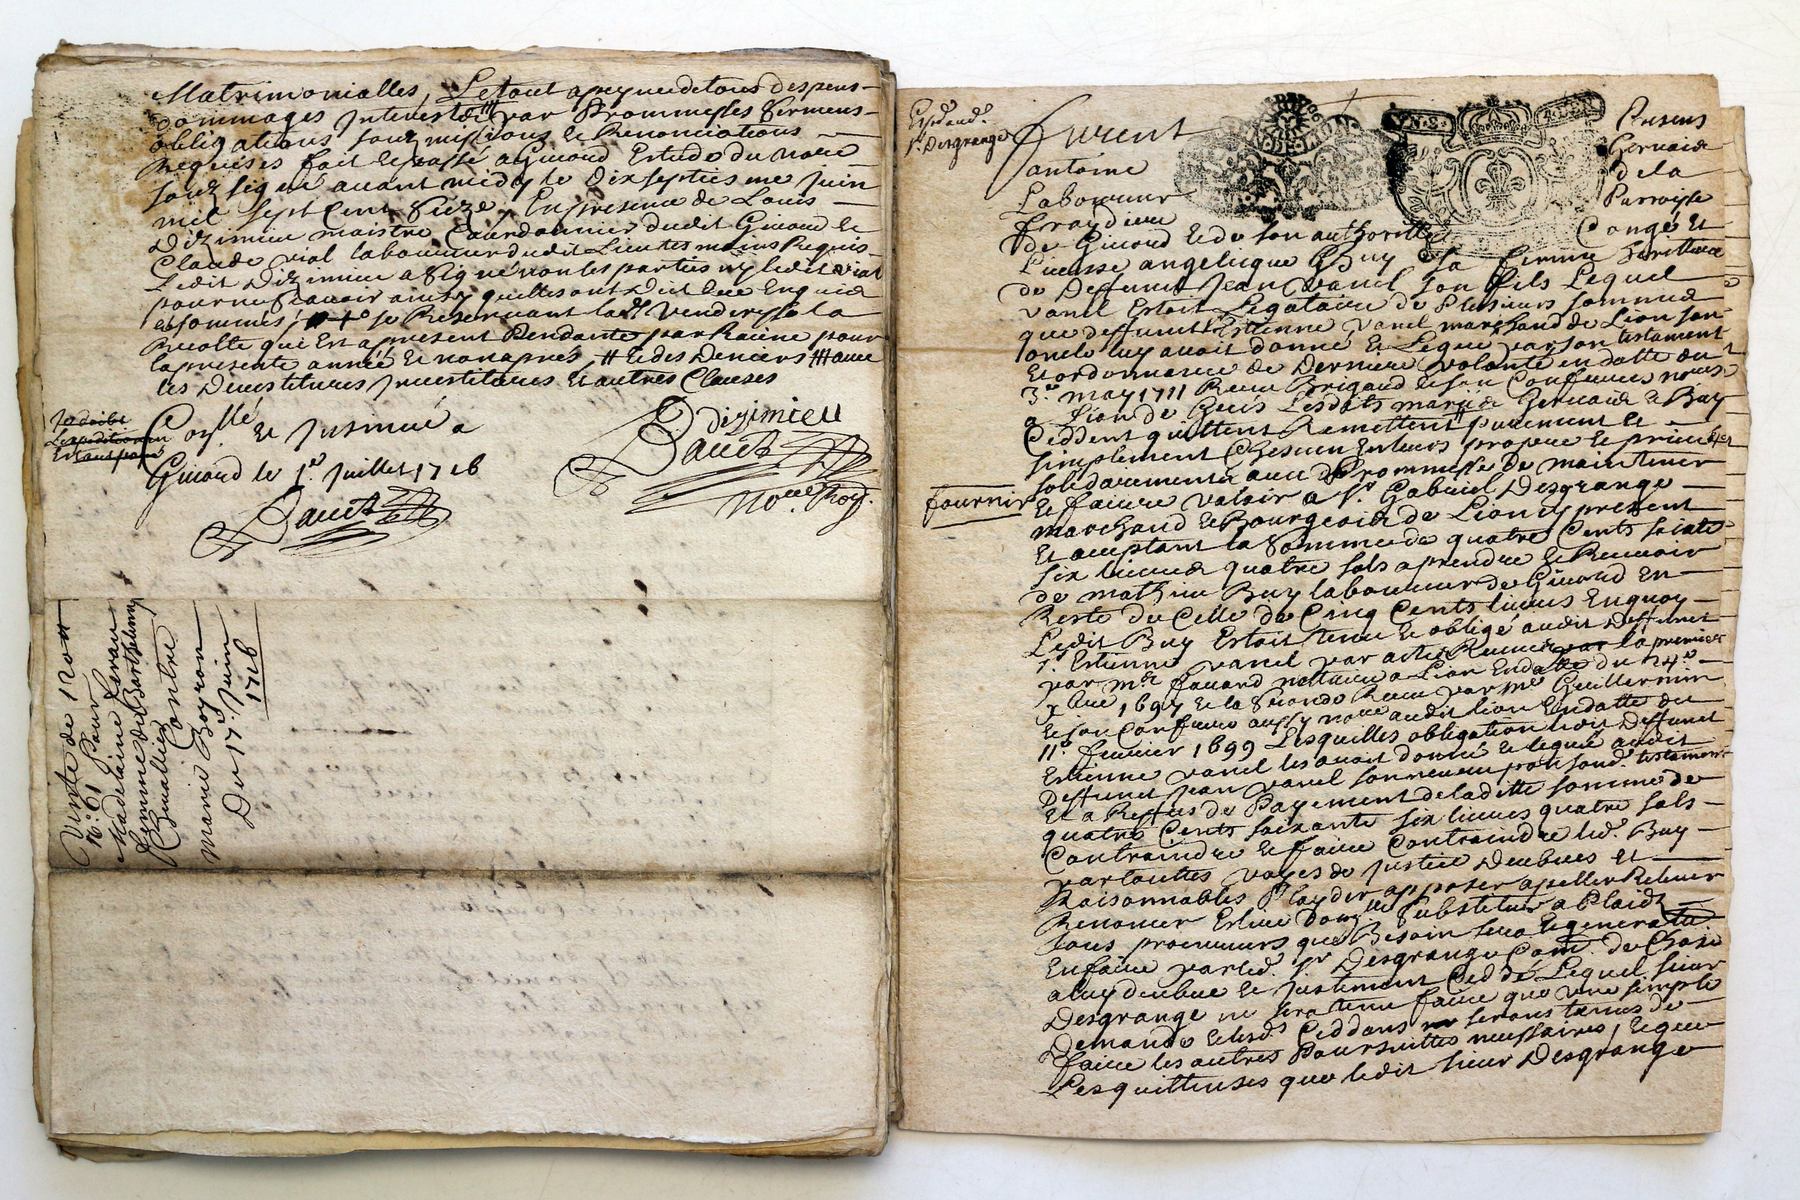 Matrimonialles, Letout apeynedetous despens
dommages Interests par Prommesses Sermens
obligations soumissions & Renonciations
Requises fait & passé a Giuord Estude du no.re
souzsigné auant midy le dix septies me Juin
mil sept cent Seize, En presence de Louis
Dizimieu maistre Courdonnier dudit Giuord &
Claude vial laboureur dudit Lieu tesmoins Requis
Ledit Dizimieu a signé non les parties ny ledit vial
pour ne scauoir ainsy quilles ont Dict de ce Enquis
& sommés, se Reseruant la Venderesse la
Recolte qui Est apresent Pendante par Racine pour
la presente année & non apres, # & des Deniers # auec
les Deuestitures Inuestitures & autres Clauses
Jay
L'expedition
Dizimieu
Coll.é & Insinué a
Giuord le 1.er Juillet 1716
No.re Roy.
Vente de
No: 61 Pour
Madelaine
femme de Barthelemy
Contre
Marie Boyron
Du 17.e Juin
1716
Exp.
S.r Desgrange
furent
antoine
Laboureur
GEN
Presens
Geruais
de la
Parroisse
Congé &
de Giuord & de son authorité
Licensse angelique Buy sa femme heritiere
de Deffunct Jean vanel son fils Lequel
vanel Estoit Legataire de Plusieurs sommes
que deffunct Estienne vanel marchand de Lion son
oncle luy auoit donné & Legué par son testament
& ordonnance de Derniere volonté en datte du
3.e may 1711 Receu Brigaud & son Confrere no.res
a Lion de Gré Lesdits mariés Geruais & Buy
Ceddent quittent Remettent purement &
simplement Chescun En leurs propre & priué
solidairement auec Prommesse de maintenir
fournir
& faire valoir a S.r Gabriel Desgrange
marchand & Bourgeois de Lion cy present
& acceptant la Somme de quatre Cents soixante
six liures quatre sols a prendre & Receuoir
de mathieu Buy laboureur de Giuord En
Reste de Celle de Cinq Cents liures En quoy
Ledit Buy Estoit tenu & obligé audit Deffunct
S.r Estienne vanel par actes Receus la premiere
par m.e no.re a Lion En datte du 24.e
1697 & la Seconde Receu par m.e Guillermin
& son Confrere aussy no.re audit lion En datte du
11.e feurier 1699 Lesquelles obligation ledit Deffunct
Estienne vanel les auoit donné & legué audit
Deffunct Jean vanel son neueu par sond. testament
& a Reffus de Payement de la ditte somme de
quatre Cents soixante six liures quatre sols
Contraindre & faire Contraindre led. Buy
par touttes voyes de Justice Deuhues &
Raisonnables Playder opposer apeller Releuer
Renoncer Eslire Dom.lles Substituer a Plaids
tous procureurs que Besoin sera & generallem.t
En faire par led. S.r Desgrange Com.e de Chose
a luy deuhue & Justement Ceddé Lequel sieur
Desgrange ne sera tenu faire que vne simple
Demande & lesd.s Ceddans seront tenus de
faire les autres Poursuittes necessaires, & que
Les quittances que ledit sieur Desgrange